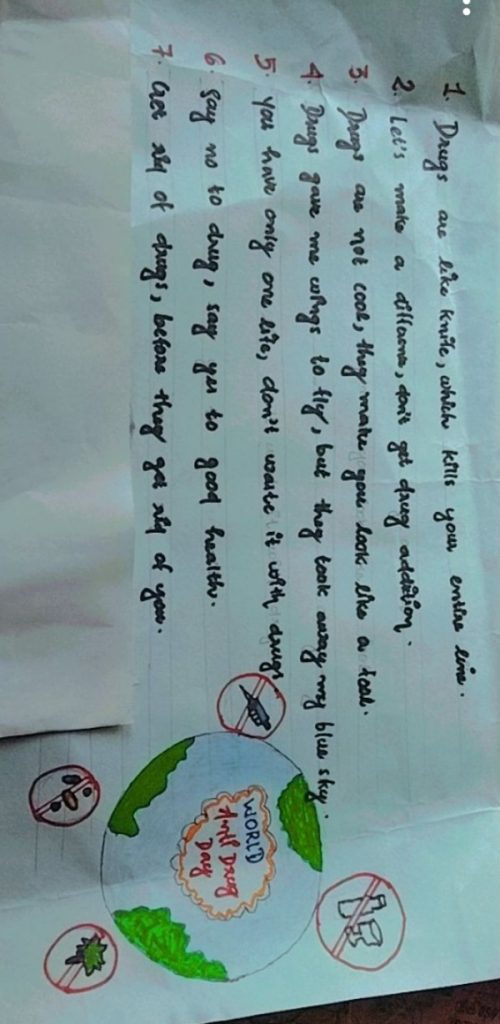 1. Drugs are like knife, which kills your entire line.
2. Let's make a difference, don't get drug addition.
3. Drugs are not cool, they make you look like a fool.
4. Drugs gave me wings to fly, but they took away my blue sky.
5. You have only one life, don't waste it with drugs
6. Say no to drug, say yes to good health.
7. Get rid of drugs, before they get rid of you.
WORLD
Anti Drug
Day